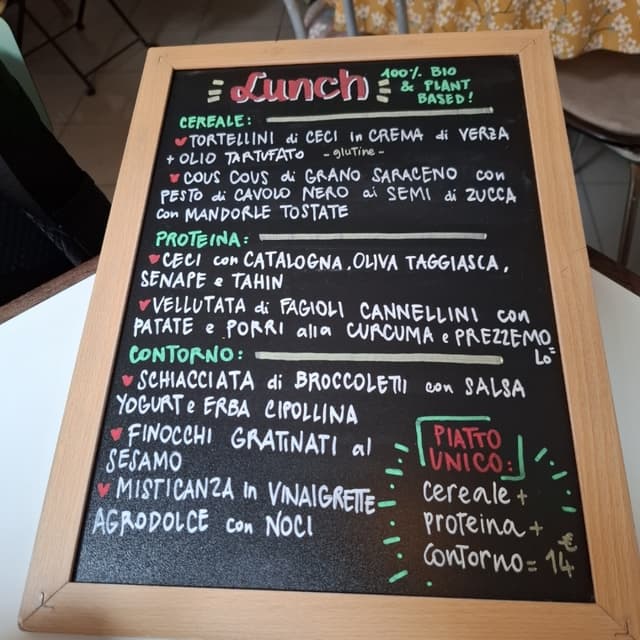 Lunch
100% BIO
& PLANT
BASED!
CEREALE:
TORTELLINI di CECI in CREMA di VERZA
+ OLIO TARTUFATO -glutine-
COUS COUS di GRANO SARACENO con
PESTO di CAVOLO NERO ai SEMI di ZUCCA
con MANDORLE TOSTATE
PROTEINA:
CECI con CATALOGNA, OLIVA TAGGIASCA,
SENAPE e TAHIN
VELLUTATA di FAGIOLI CANNELLINI con
PATATE e PORRI alla CURCUMA e PREZZEMO
LO=
CONTORNO:
SCHIACCIATA di BROCCOLETTI con SALSA
YOGURT e ERBA CIPOLLINA
FINOCCHI GRATINATI al
SESAMO
MISTICANZA in VINAIGRETTE
AGRODOLCE con NOCI
PIATTO
UNICO:
cereale +
proteina +
contorno = 14 €